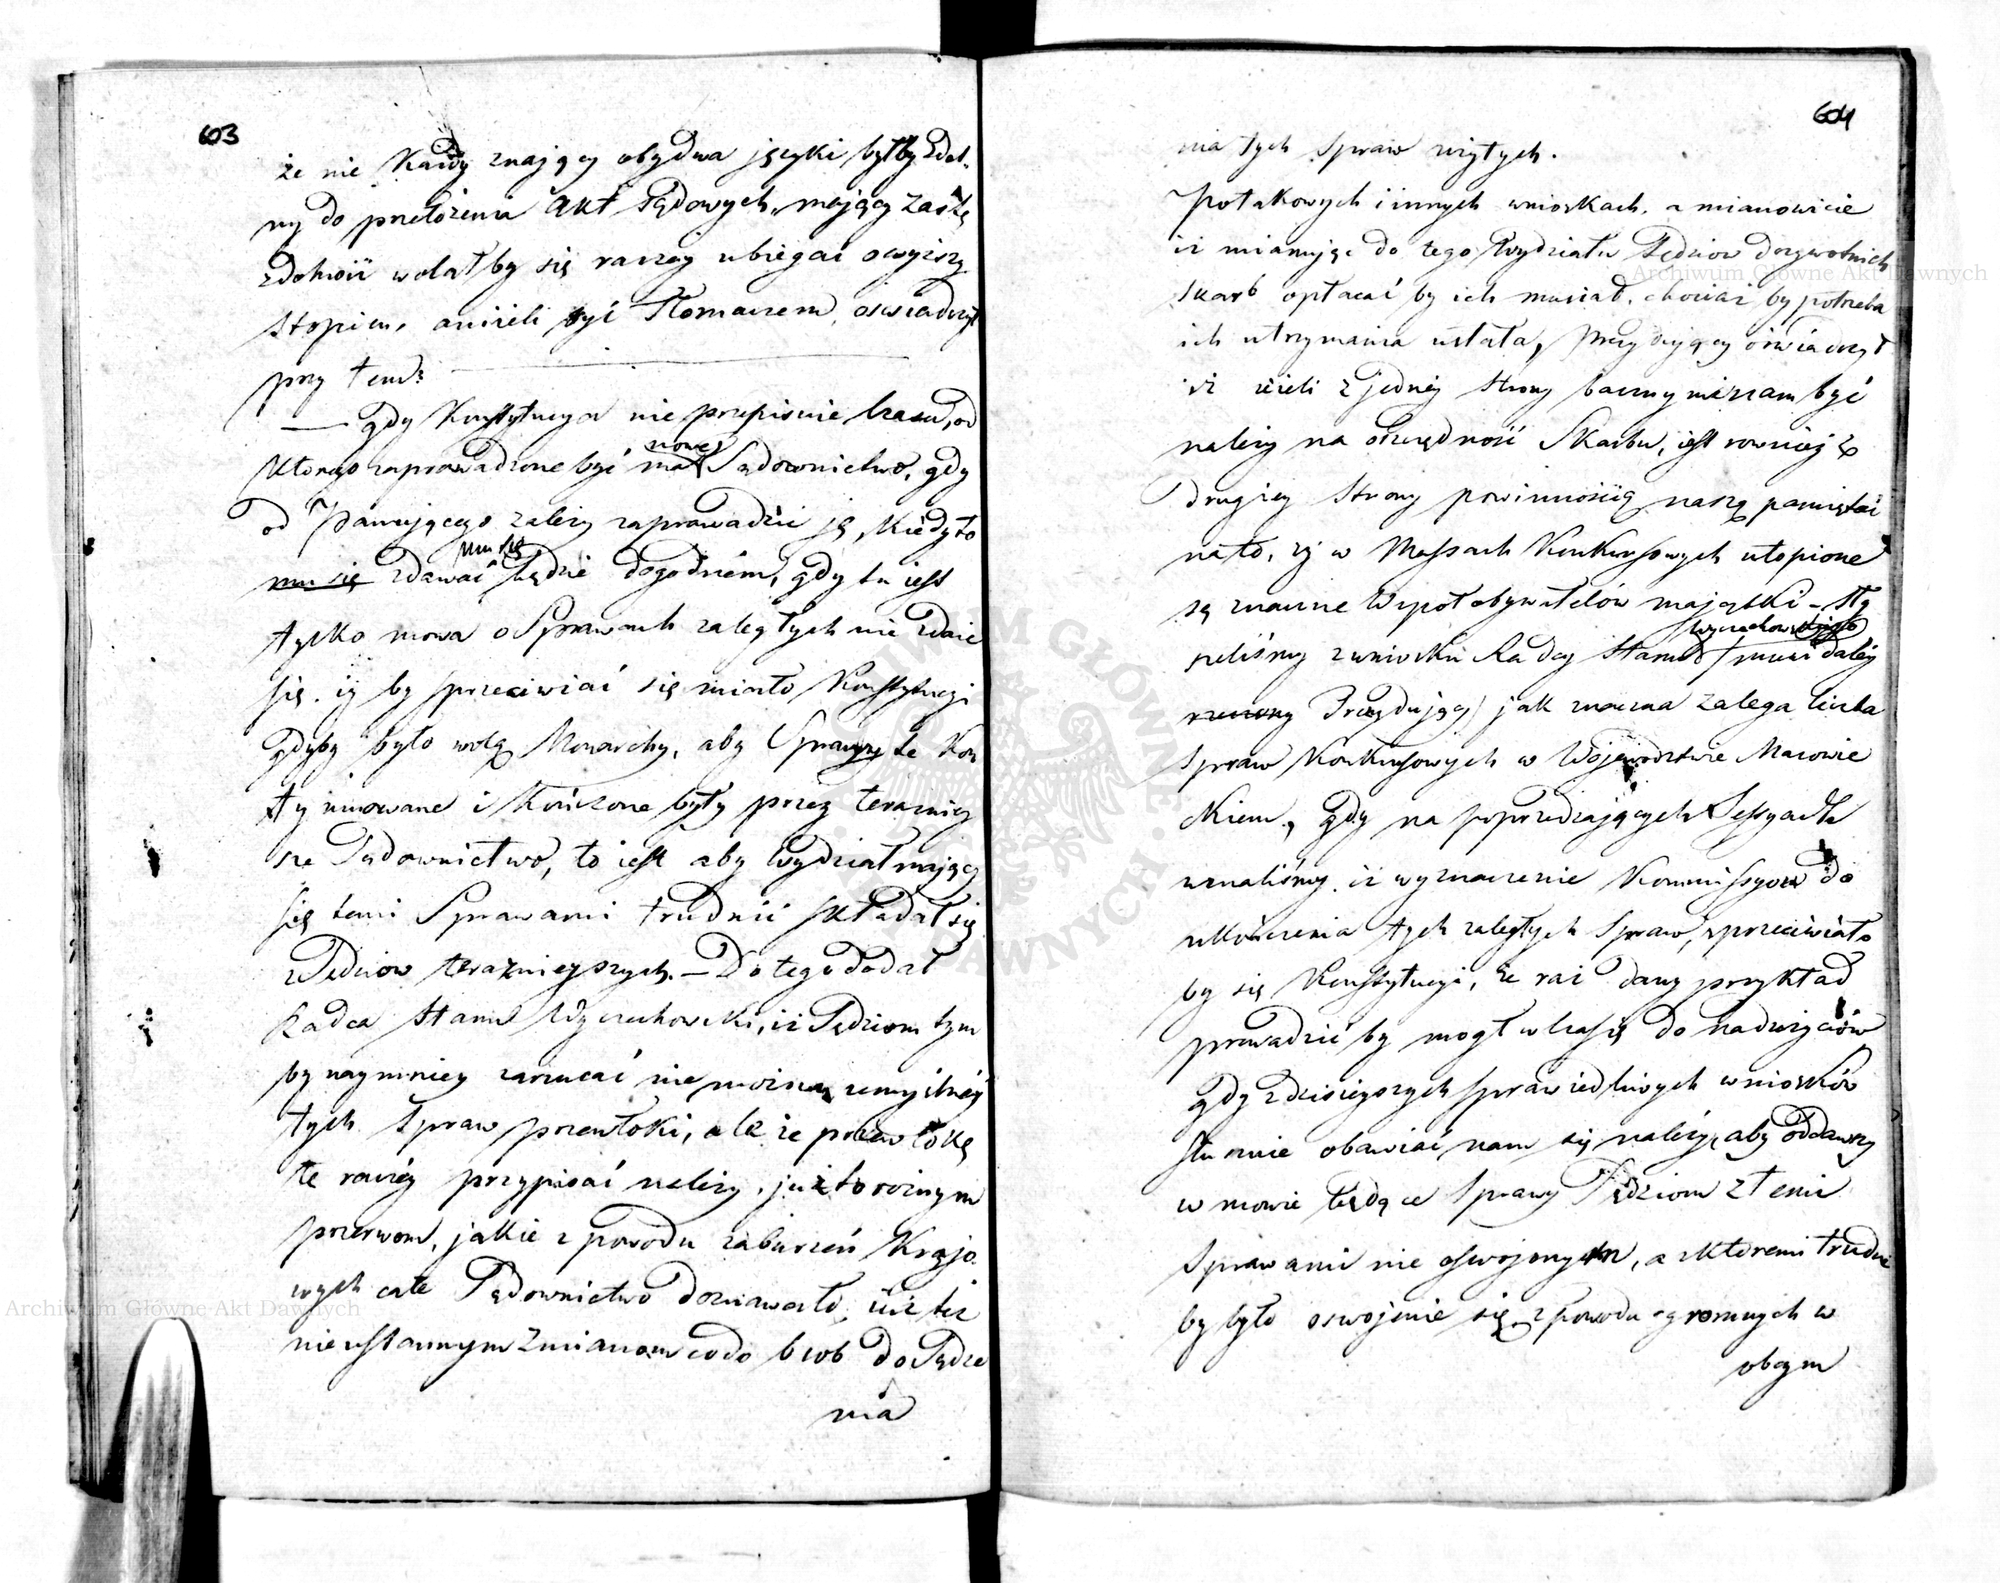 603
że nie Każdy znający obydwa języki byłby zdol-
ny do przełożenia Akt Sądowych, mający zaś tę
zdolność wolałby się raczey ubiegać o wyższy
stopień, aniżeli być Tłomaczem, oświadczył
przy tem:
— gdy Konstytucya nie przepisuie czasu, od
którego zaprowadzone być ma nowe Sądownictwo, gdy
od Panującego zależy zaprowadzić ją, kiedy to
mu się zdawać mu się będzie dogodniem, gdy tu iest
tylko mowa o Sprawach zaległych nie zdaie
się, iż by sprzeciwiać się miało Konstytucyi
gdyby było wolą Monarchy, aby Sprawy te kon
tynuowane i kończone były przez teraźniey
sze Sądownictwo, to iest aby Wydział mający
się temi Sprawami trudnić składał się
z Sędziów teraźnieyszych. — Do tego dodał
Radca Stanu Wyczechowski, iż Sędziom tym
by naymniey zarzucać nie można umyślnéy
tych Spraw przewłoki, ale że przewłokę
tę raczéy przypisać należy, już to różnym
przerwom, jakie z powodu zaburzeń Krajo
wych całe Sądownictwo doznawało, iuż też
nieustannym zmianom co do osób do Sądze
nia
604
nia tych Spraw użytych.
Po takowych i innych wnioskach, a mianowicie
iż mianując do tego Wydziału Sędziów dożywotnich
Skarb opłacać by ich musiał, chociaż by potrzeba
ich utrzymania ustała, Prezydujący oświadczył
iż ieżeli z jednéy Strony baczny mieć zam być
należy na oszczędność Skarbu, iest rowniéż z
drugiey Strony powinnością naszą pamiętać
na to, iż w Massach Konkursowych utopione
są znaczne Współobywatelów majątki — Sły
szeliśmy z wniosku Radcy Stanu Wyczechowskiego (mówi daléy
rzeczony Prezydujący) jak znaczna zalega liczba
Spraw Konkursowych w Województwie Mazowie
ckiem, gdy na poprzedzających Sessyach
uznaliśmy, iż wyznaczenie Kommissyów do
ukończenia tych zaległych Spraw, sprzeciwiało
by się Konstytucyi, że raz dany przykład
prowadzić by mógł w czasię do nadużyciów
gdy z dzisieyszych sprawiedliwych wniosków
słusznie obawiać nam się należy, aby oddawszy
w mowie będące Sprawy Sędziom z temi
Sprawami nie oswojonym, a z któremi trudne
by było oswojenie się, z powodu ogromnych w
obcym